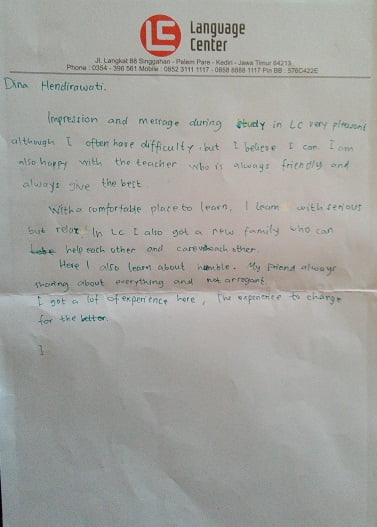 LC
Language
Center
Jl. Langkat 88 Singgahan - Pelem Pare - Kediri - Jawa Timur 64213
Phone : 0354 - 396 561 Mobile : 0852 3111 1117 - 0858 8888 1117 Pin BB : 576C422E
Dina Hendirawati.
Impression and message during study in LC very pleasant
although I often have difficulty. but I believe I can. I am
also happy with the teacher who is always friendly and
always give the best.
With a comfortable place to learn, I learn with serious
but relax. In LC I also got a new family who can
help each other and care each other.
Here I also learn about humble. My friend always
sharing about everything and not arrogant.
I got a lot of experience here, The experience to change
for the better.